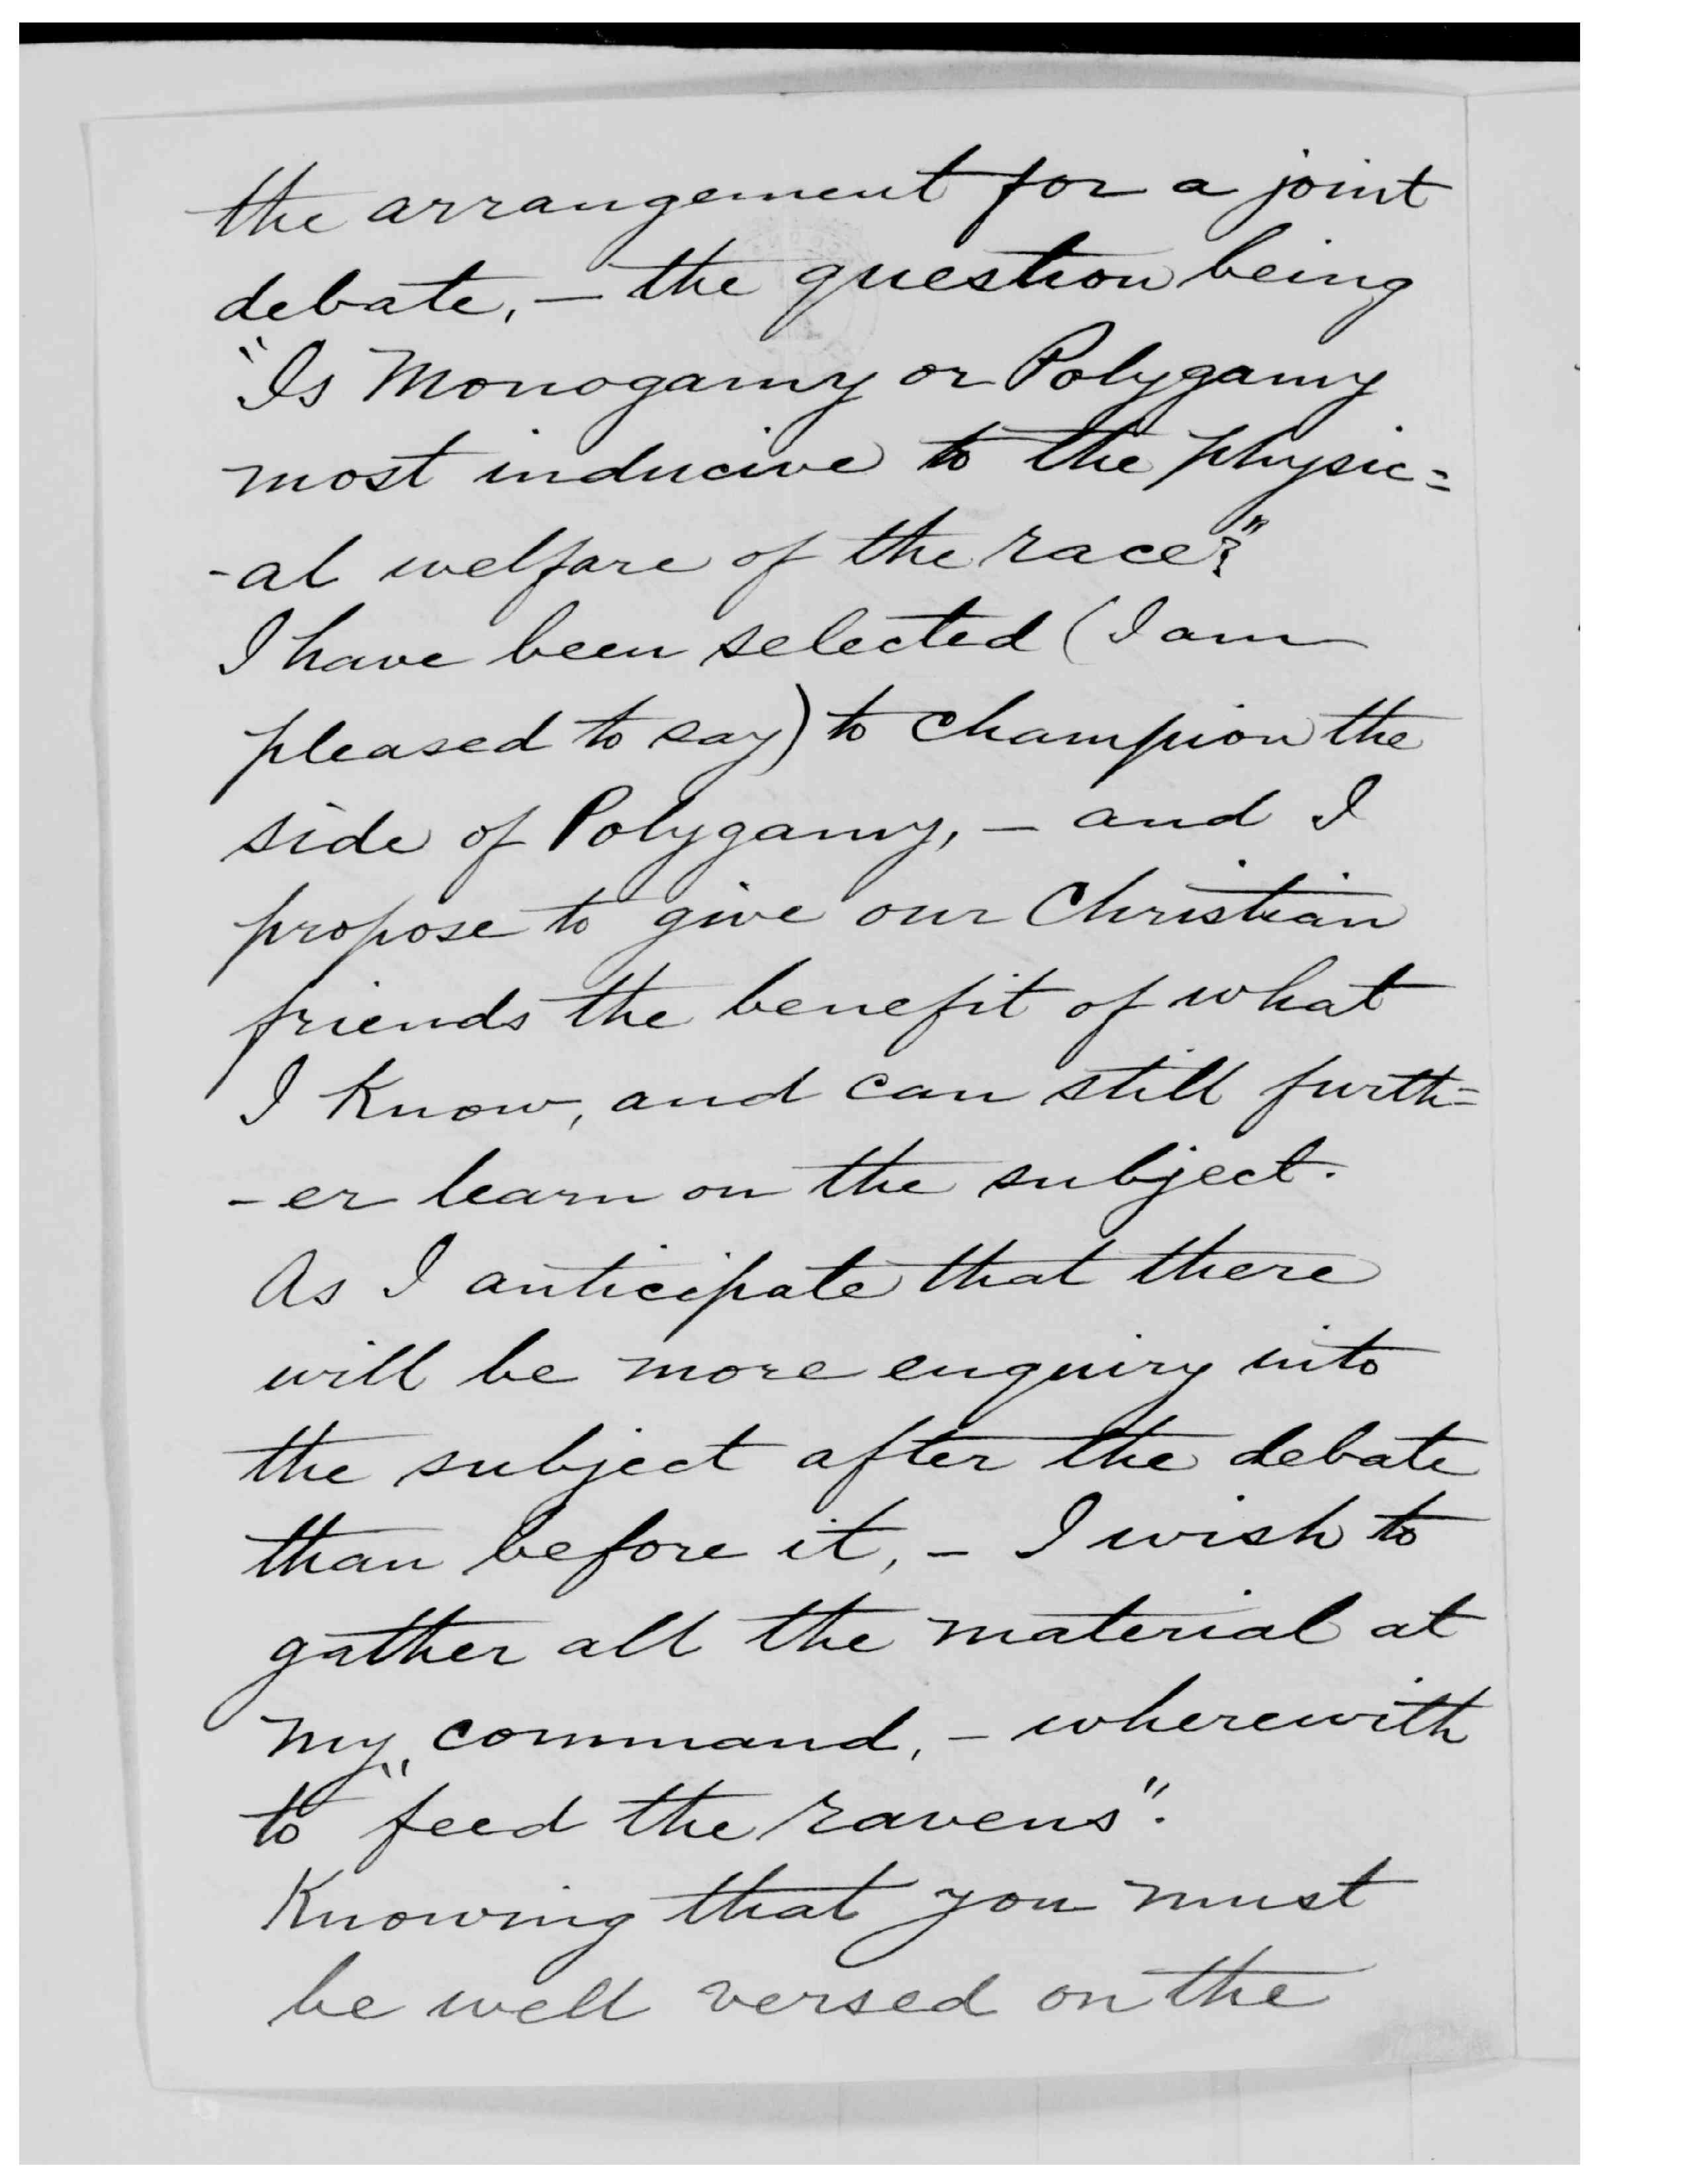 the arrangement for a joint
debate, — the question being
"Is Monogamy or Polygamy
most inducive to the physic=
-al welfare of the race?"
I have been selected (I am
pleased to say) to champion the
side of Polygamy, — and I
propose to give our Christian
friends the benefit of what
I know, and can still furth=
-er learn on the subject.
As I anticipate that there
will be more enquiry into
the subject after the debate
than before it, — I wish to
gather all the material at
my command, — wherewith
to "feed the ravens".
Knowing that you must
be well versed on the